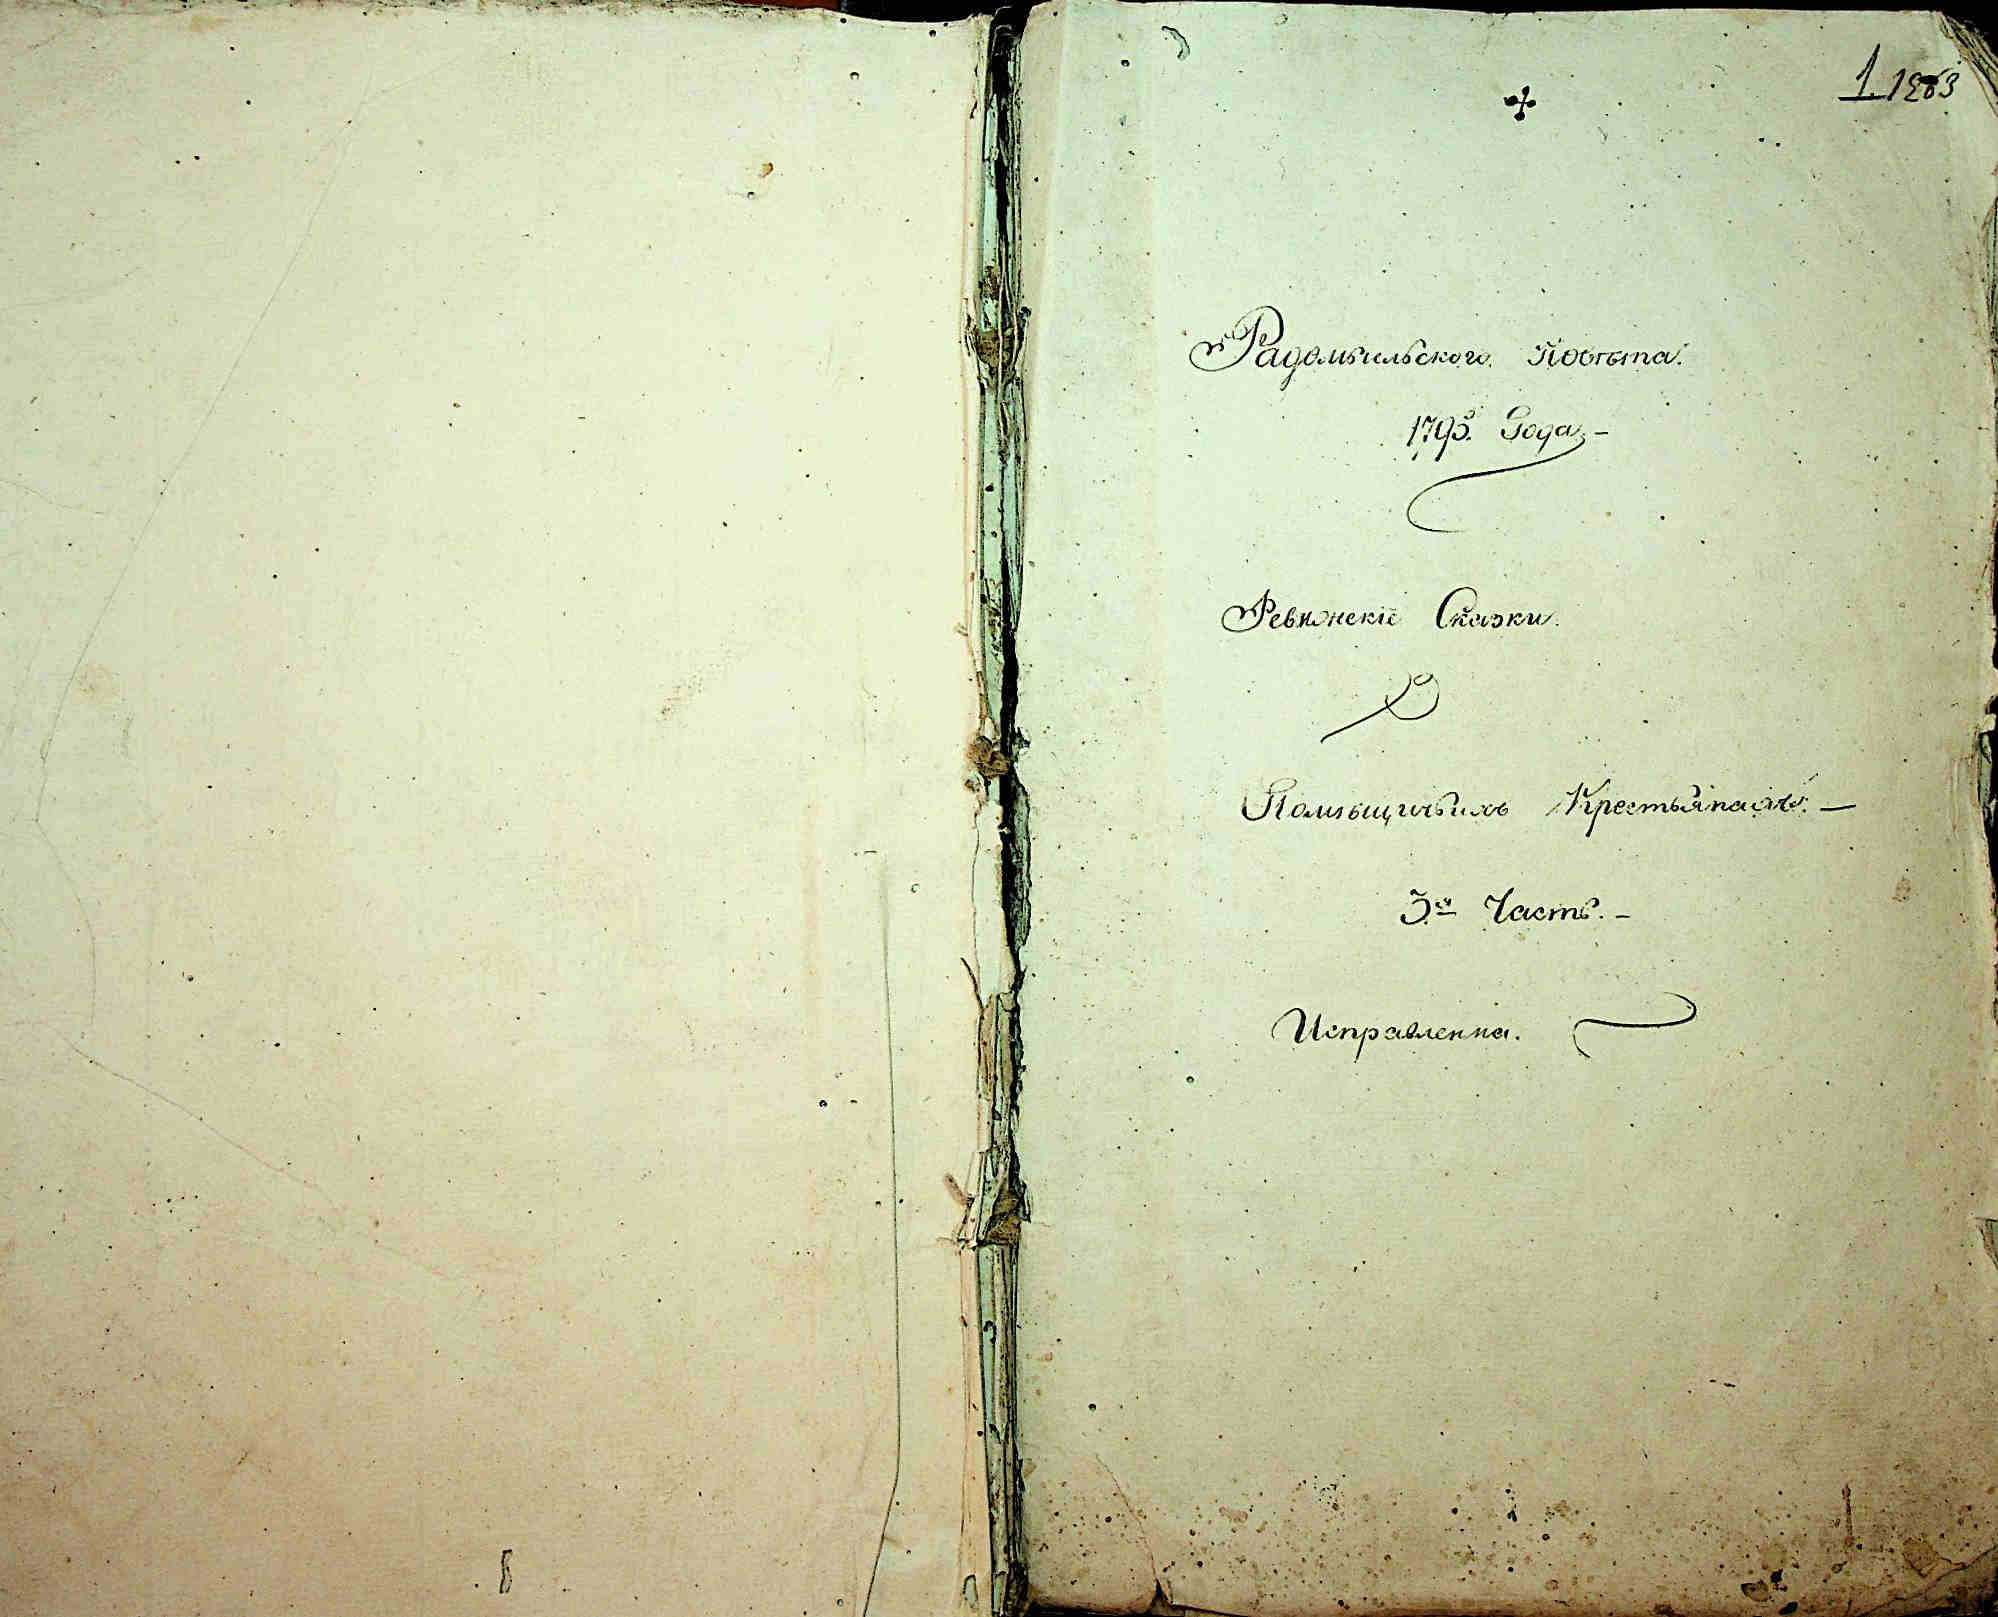 1.
Радомыльского Повѣта.
1795. Года
Ревизскіе Сказки.
Помѣщичьимъ Крестьянамъ.
3.я Часть.
Исправленна.